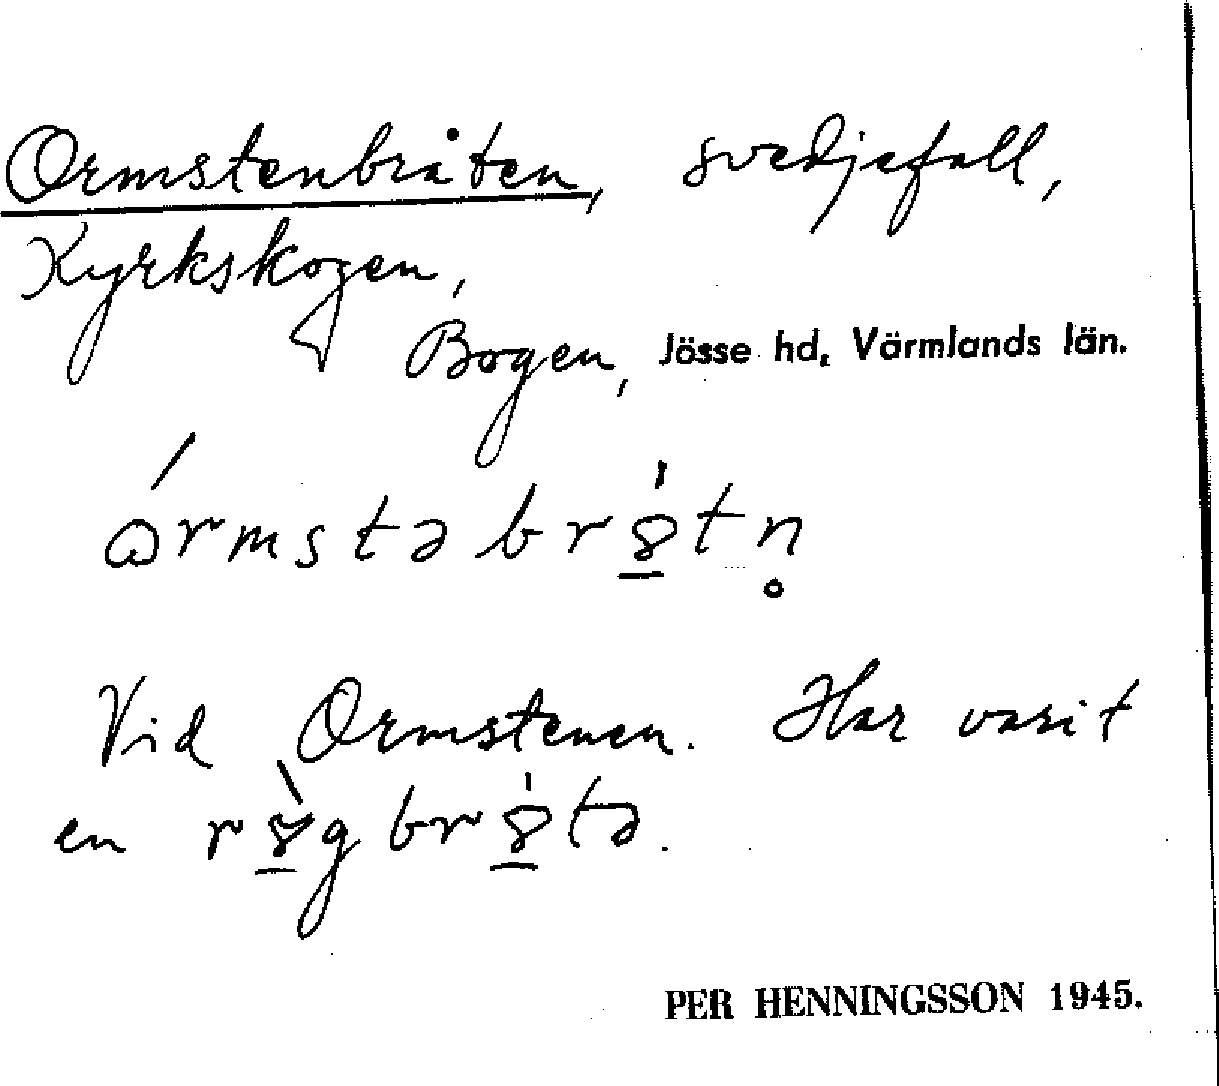 Ormstenbråten, svedjefall,
Kyrkskogen,
Bogen, Jösse hd, Värmlands län.
ɷ́rmstəbr8̱̍tn̥
Vid Ormstenen. Har varit
en r8̱̀gbr8̱̍tə.
PER HENNINGSSON 1945.